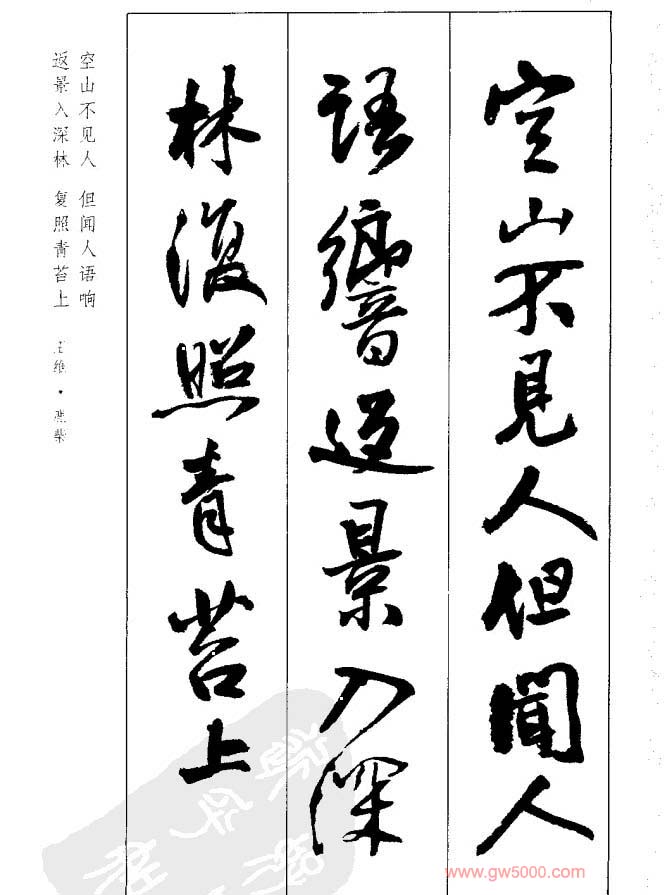 空山不見人但聞人
語響返景入深
林復照青苔上
空山不见人 但闻人语响
返景入深林 复照青苔上 王维·鹿柴
www.gw5000.com